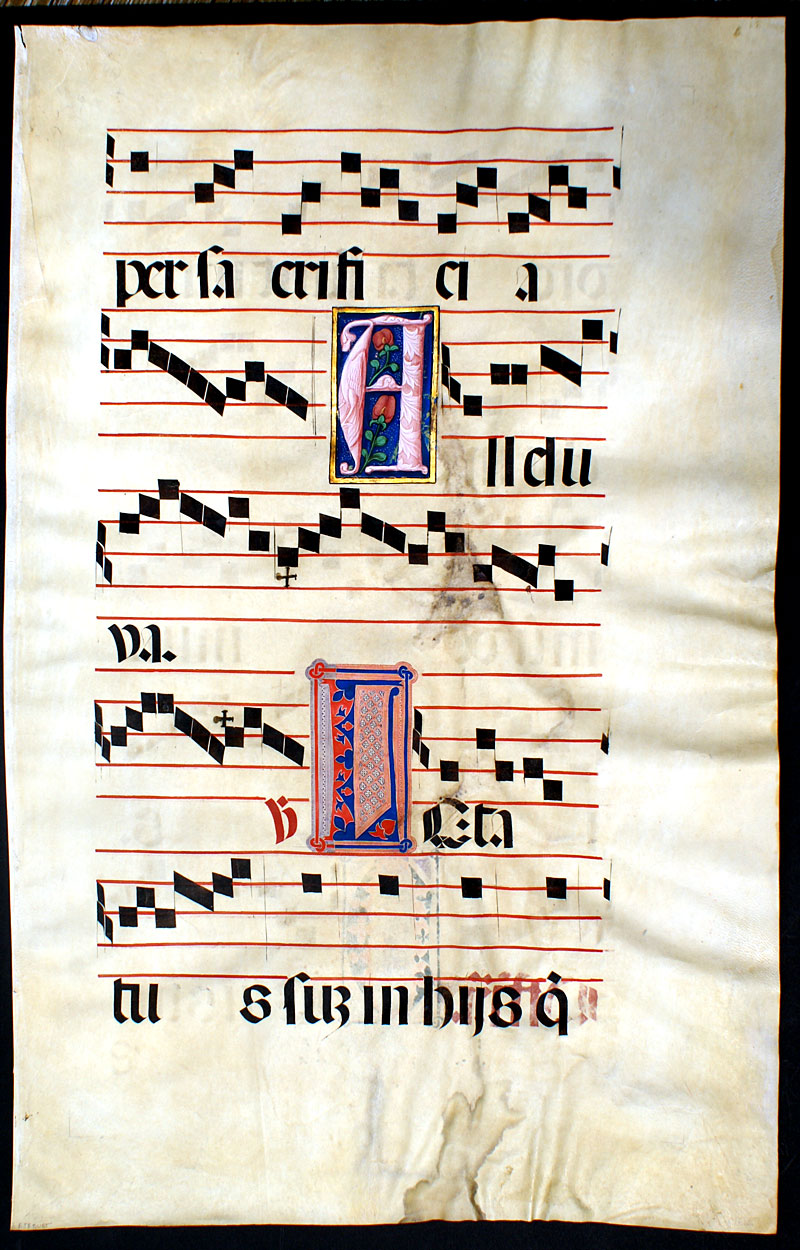 per sa crifi ci a
A llelu
ya.
℣ L eta
tu s suꝫ in hijs q̃